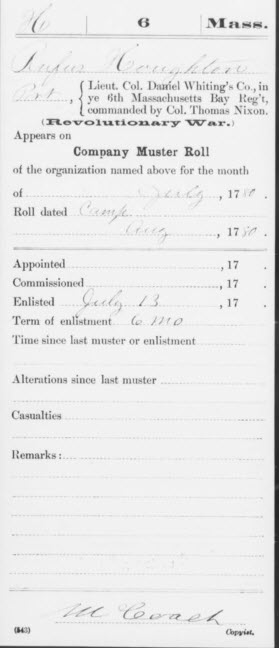 H | 6 | Mass.
Rufus Houghton
Pvt, { Lieut. Col. Daniel Whiting's Co., in
ye 6th Massachusetts Bay Reg't,
commanded by Col. Thomas Nixon.
(Revolutionary War.)
Appears on
Company Muster Roll
of the organization named above for the month
of July, 1780.
Roll dated Camp
Aug, 1780.
Appointed, 17 .
Commissioned, 17 .
Enlisted July 13, 17 .
Term of enlistment 6 mo
Time since last muster or enlistment
Alterations since last muster
Casualties
Remarks:
M Coach
(543) Copyist.